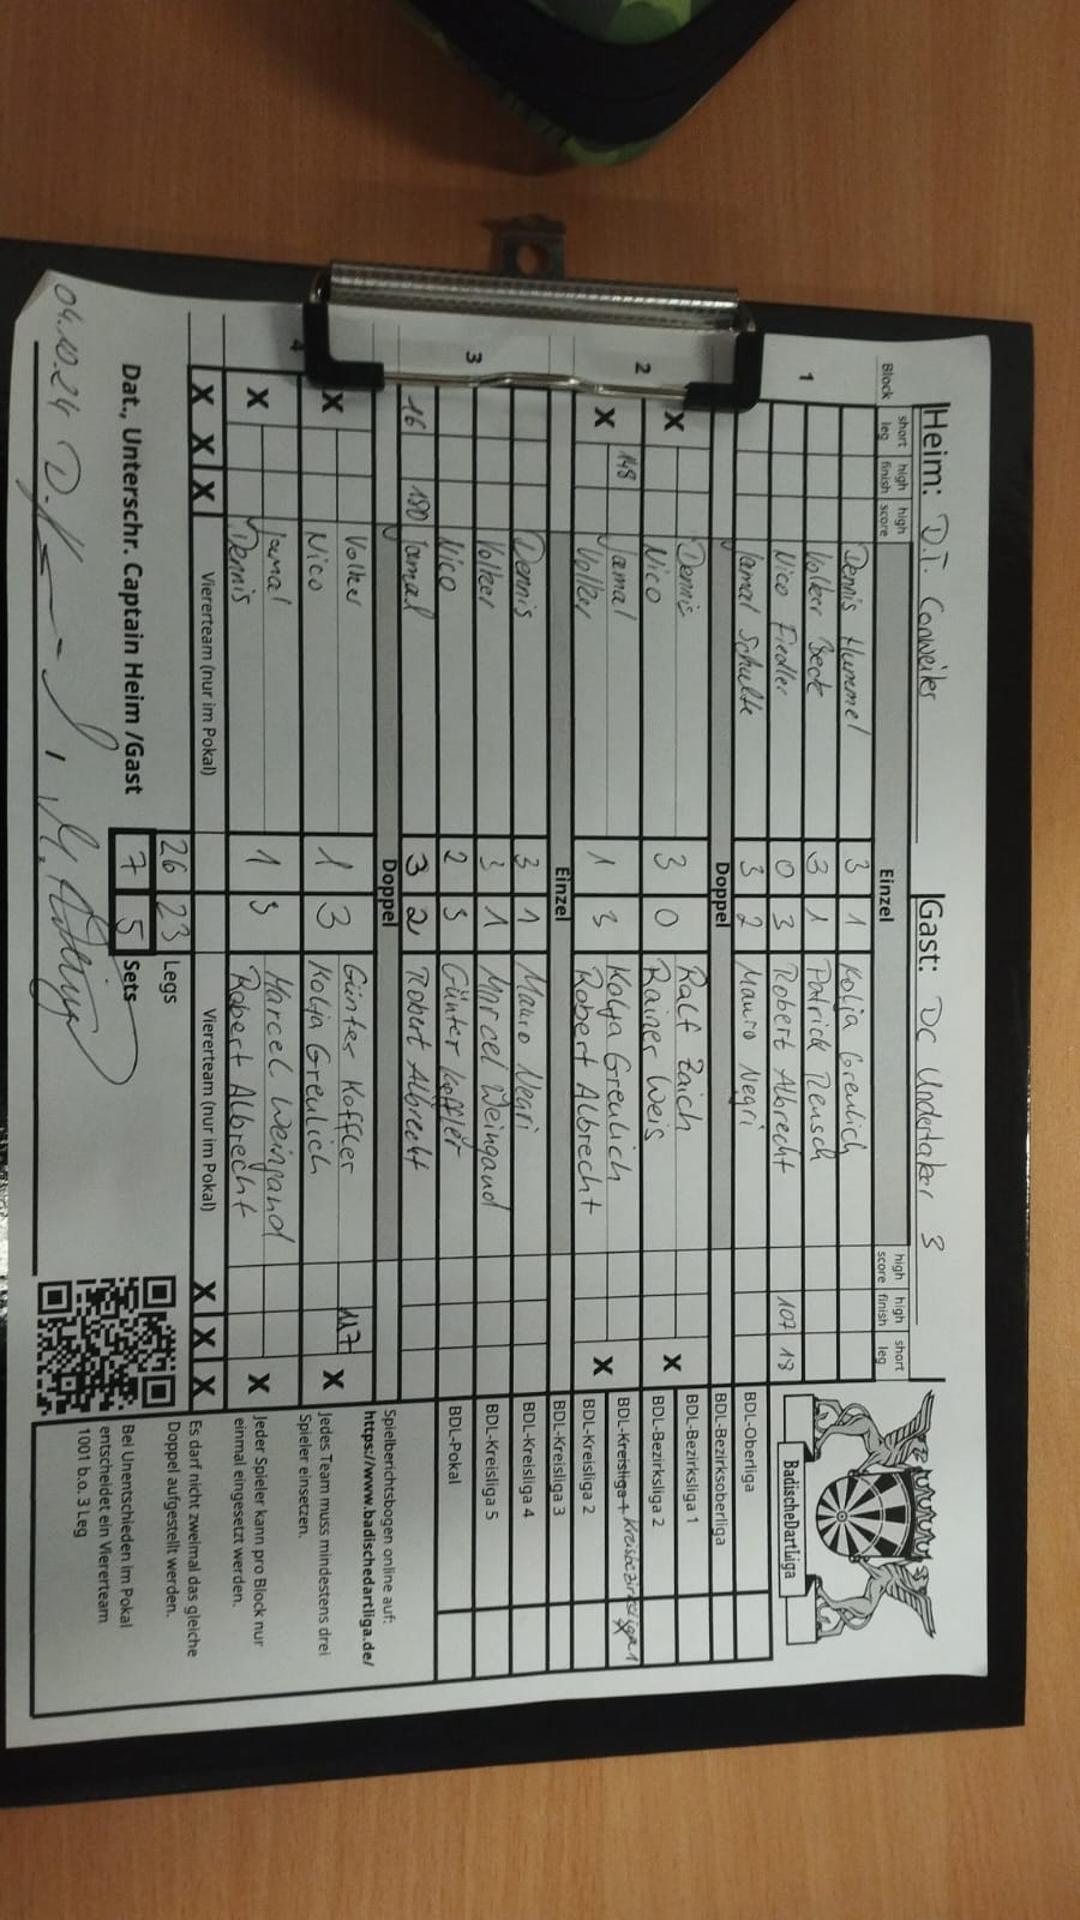 Heim: D.T. Conweiler Gast: DC Undertaker 3
Block short leg high finish high score Einzel high score high finish short leg
1 Dennis Hummel 3 1 Kolja Greulich
Volker Beck 3 1 Patrick Rensch
Nico Fiedler 0 3 Robert Albrecht 107 18
Jamal Schulte 3 2 Mauro Negri
Doppel
2 X Dennis Nico 3 0 Ralf Zaich Rainer Weis X
X 148 Jamal Volker 1 3 Kolja Greulich Robert Albrecht X
Einzel
3 Dennis 3 1 Mauro Negri
Volker 3 1 Marcel Weingand
Nico 2 3 Günter Koffler
16 180 Jamal 3 2 Robert Albrecht
Doppel
4 X Volker Nico 1 3 Günter Koffler Kolja Greulich 117 X
X Jamal Dennis 1 3 Marcel Weingand Robert Albrecht X
X X X Viererteam (nur im Pokal) Viererteam (nur im Pokal) X X X
26 23 Legs
7 5 Sets
Dat., Unterschr. Captain Heim /Gast
04.10.24
BadischeDartLiga
BDL-Oberliga
BDL-Bezirksoberliga
BDL-Bezirksliga 1
BDL-Bezirksliga 2
BDL-Kreisliga 1 Kreisbezirksliga 1 X
BDL-Kreisliga 2
BDL-Kreisliga 3
BDL-Kreisliga 4
BDL-Kreisliga 5
BDL-Pokal
Spielberichtsbogen online auf:
https://www.badischedartliga.de/
Jedes Team muss mindestens drei
Spieler einsetzen.
Jeder Spieler kann pro Block nur
einmal eingesetzt werden.
Es darf nicht zweimal das gleiche
Doppel aufgestellt werden.
Bei Unentschieden im Pokal
entscheidet ein Viererteam
1001 b.o. 3 Leg